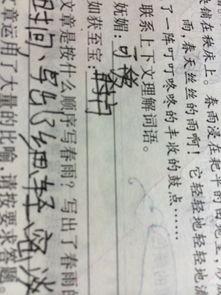 铺在秧床上。春雨浸在秧苗的
雨,春天丝丝的雨啊!它轻轻地轻轻地滴
了一阵叮叮咚咚的丰收的鼓点……
联系上下文理解词语。
妩媚:可
如获至宝:
文章是按什么顺序写春雨?写出了春雨的
时间,写出了细、轻、密
章运用了大量的比喻,请按要求答题。